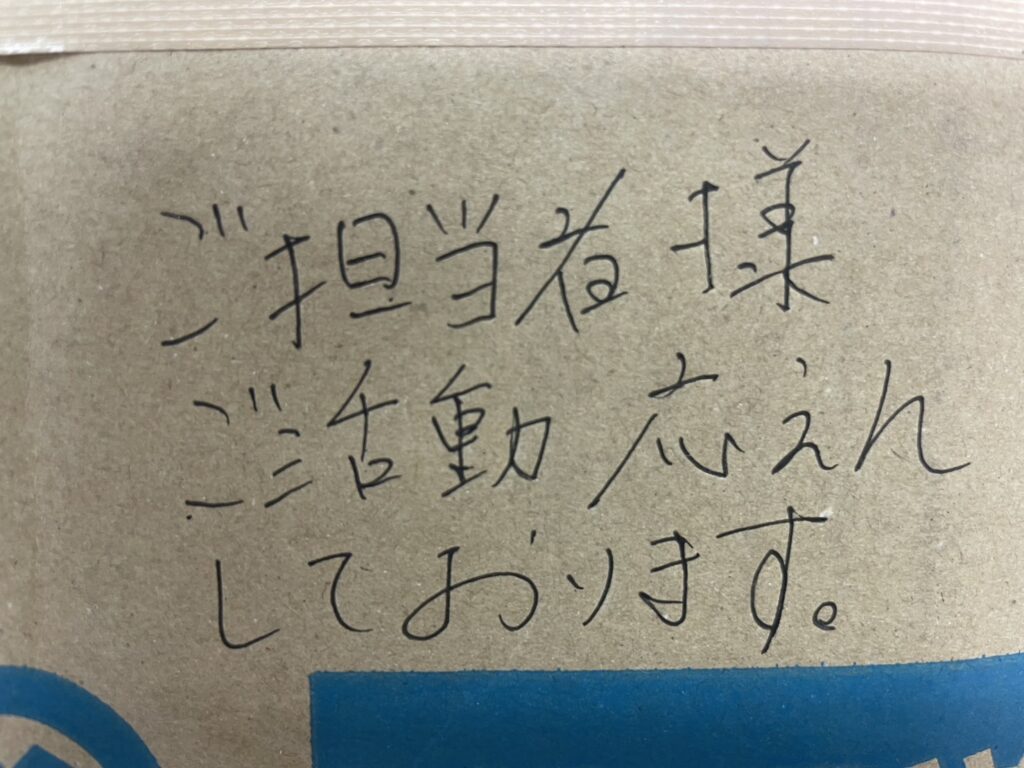 ご担当者様
ご活動応えん
しております。